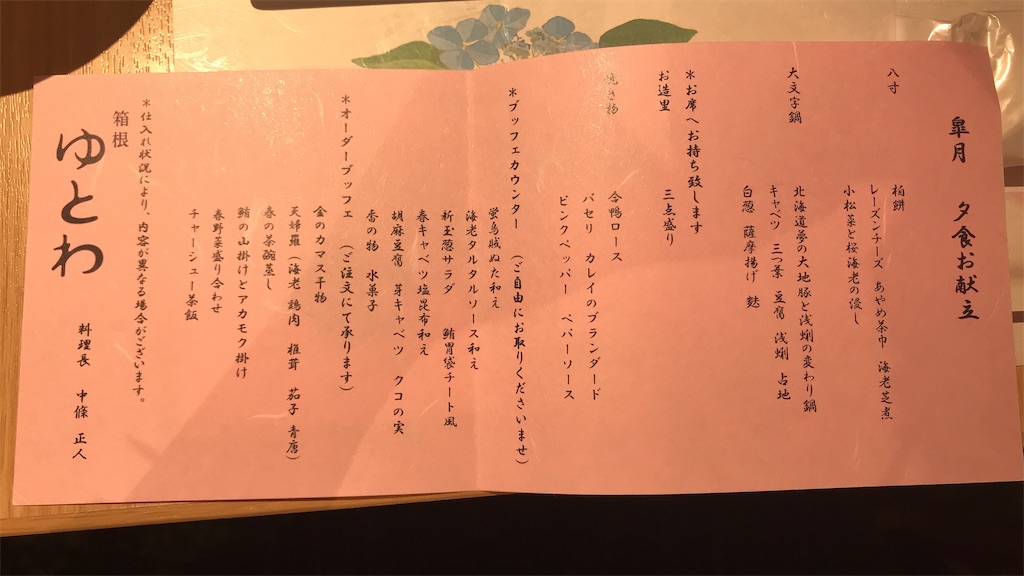 皐月 夕食お献立
八寸
柏餅
レーズンチーズ あやめ茶巾 海老芝煮
小松菜と桜海老の浸し
大文字鍋
北海道夢の大地豚と浅蜊の変わり鍋
キャベツ 三つ葉 豆腐 浅蜊 占地
白葱 薩摩揚げ 麩
＊お席へお持ち致します
お造里
三点盛り
焼き物
合鴨ロース
パセリ カレイのブランダード
ピンクペッパー ペパーソース
＊ブッフェカウンター （ご自由にお取りくださいませ）
蛍烏賊ぬた和え
海老タルタルソース和え
新玉葱サラダ 鮪胃袋チート風
春キャベツ塩昆布和え
胡麻豆腐 芽キャベツ クコの実
香の物 水菓子
＊オーダーブッフェ （ご注文にて承ります）
金のカマス干物
天婦羅（海老 鶏肉 椎茸 茄子 青唐）
春の茶碗蒸し
鮪の山掛けとアカモク掛け
春野菜盛り合わせ
チャーシュー茶飯
＊仕入れ状況により、内容が異なる場合がございます。
箱根
ゆとわ
料理長 中條 正人